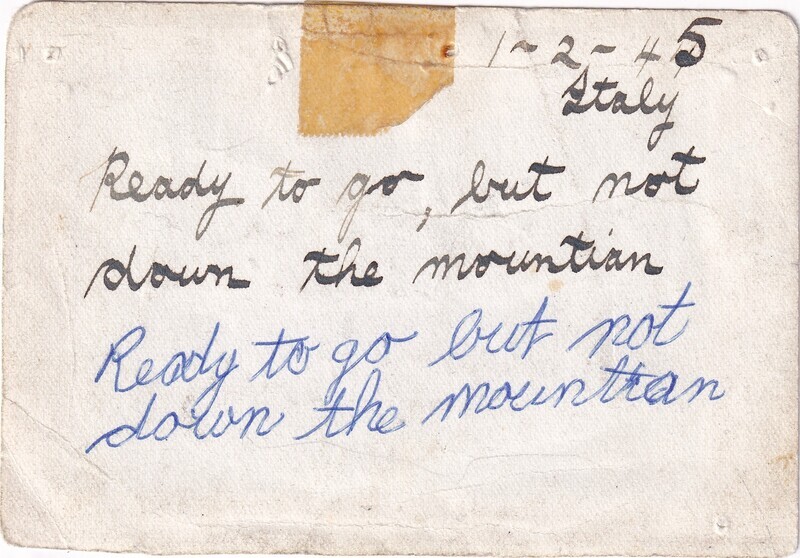 1-2-45
Italy
Ready to go, but not
down the mountian
Ready to go but not
down the mounttan